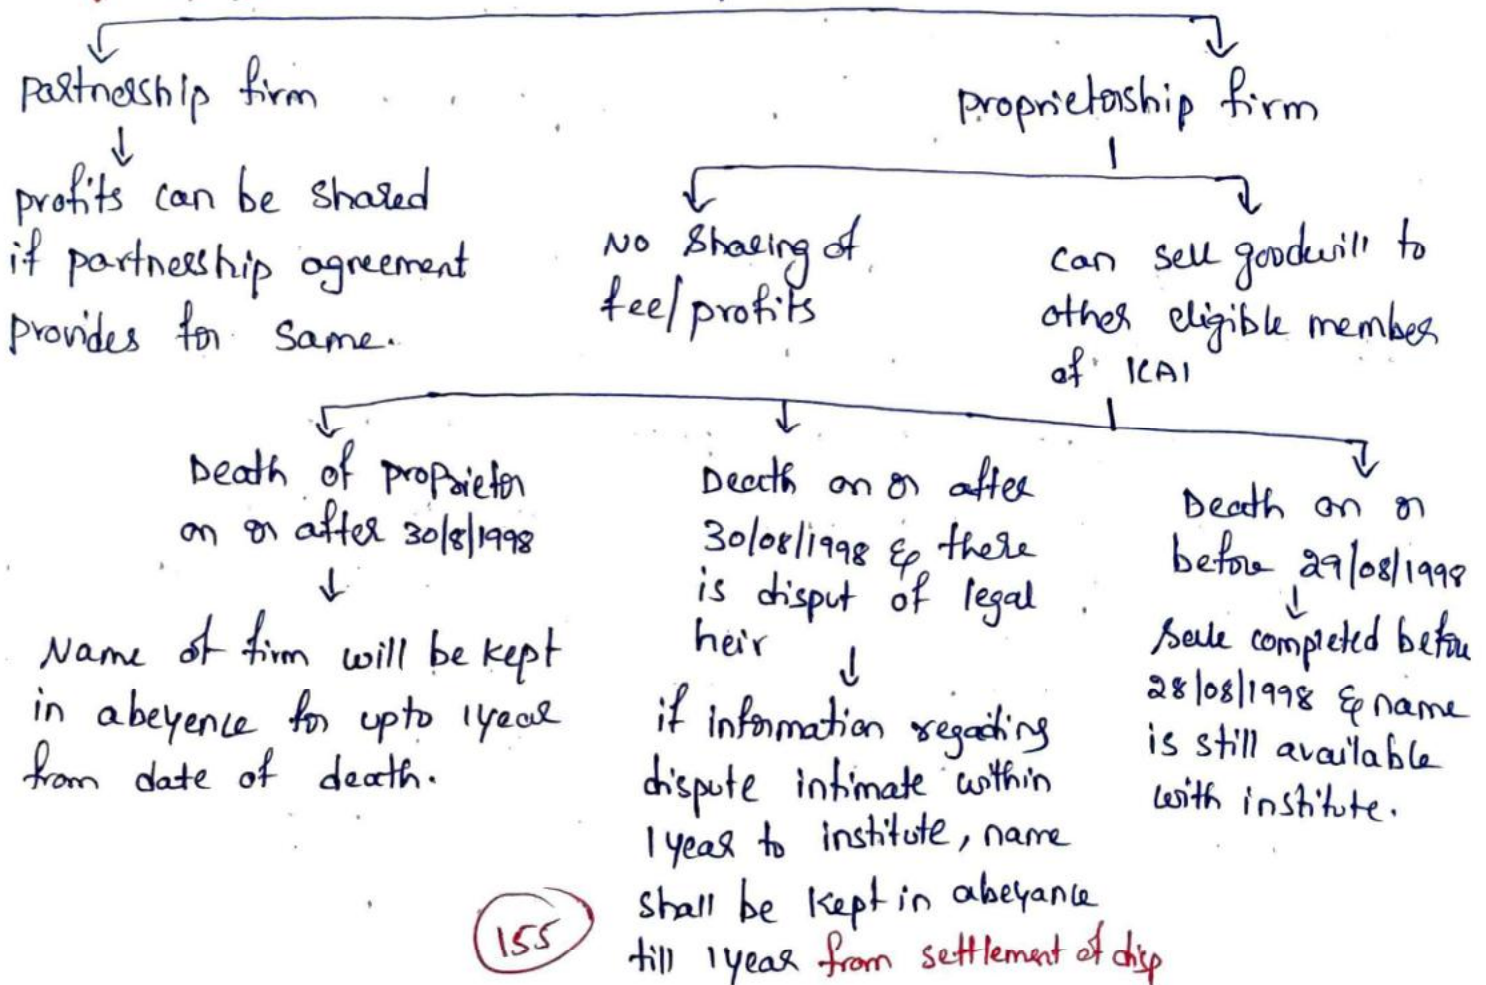 Partnership firm
profits can be shared
if partnership agreement
provides for same.
proprietorship firm
No Sharing of
fee/profits
can sell goodwill to
other eligible member
of ICAI
Death of proprietor
on or after 30/8/1998
Name of firm will be kept
in abeyence for upto 1year
from date of death.
Death on or after
30/08/1998 & there
is disput of legal
heir
if information regarding
dispute intimate within
1 year to institute, name
shall be kept in abeyance
till 1 year from settlement of disp
Death on or
before 29/08/1998
sale completed before
28/08/1998 & name
is still available
with institute.
155